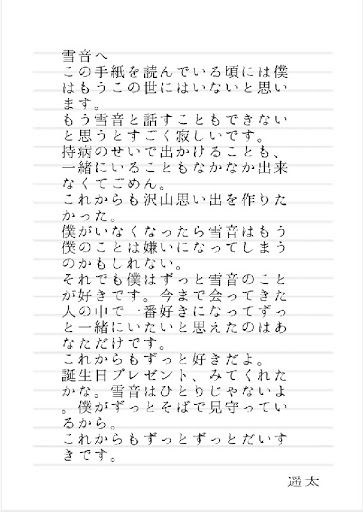 雪音へ
この手紙を読んでいる頃には僕
はもうこの世にはいないと思い
ます。
もう雪音と話すこともできない
と思うとすごく寂しいです。
持病のせいで出かけることも、
一緒にいることもなかなか出来
なくてごめん。
これからも沢山思い出を作りた
かった。
僕がいなくなったら雪音はもう
僕のことは嫌いになってしまう
のかもしれない。
それでも僕はずっと雪音のこと
が好きです。今まで会ってきた
人の中で一番好きになってずっ
と一緒にいたいと思えたのはあ
なただけです。
これからもずっと好きだよ。
誕生日プレゼント、みてくれた
かな。雪音はひとりじゃないよ
。僕がずっとそばで見守ってい
るから。
これからもずっとずっとだいす
きです。
遥太